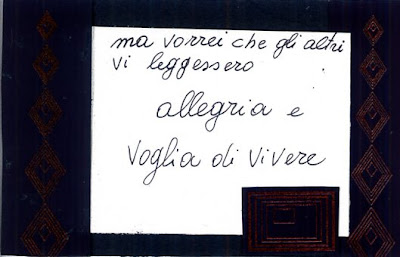 ma vorrei che gli altri
vi leggessero
allegria e
voglia di vivere